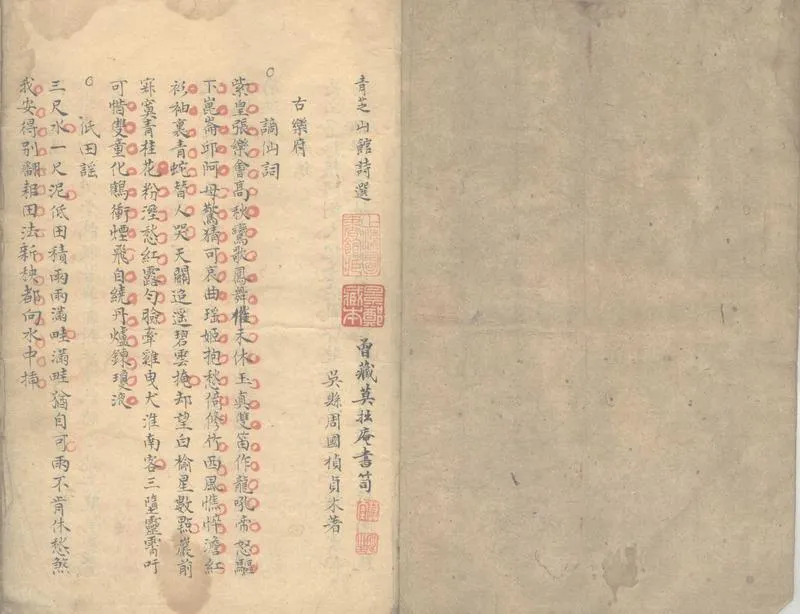 青芝山館詩選
曾藏莫拙庵書笥
吳縣周國楨貞木著
古樂府
謫仙詞
紫皇張樂會高秋鸞歌鳳舞催未休玉真雙笛作龍吼帝怒驅
下崑崙邱阿母驚猜可哀曲瑶姬抱愁倚修竹西風憔悴澹紅
衫袖裏青蛇替人哭天關迢遥碧雲掩却望白榆星數點巖前
寂寞青桂花粉溼愁紅露勻臉牽雞曳犬淮南客三墮靈霄吁
可惜雙童化鶴衝煙飛自繞丹爐鍊瓊液
低田謡
三尺水一尺泥低田積雨雨滿畦滿畦猶自可雨不肯休愁煞
我安得别翻耜田法新秧都向水中插